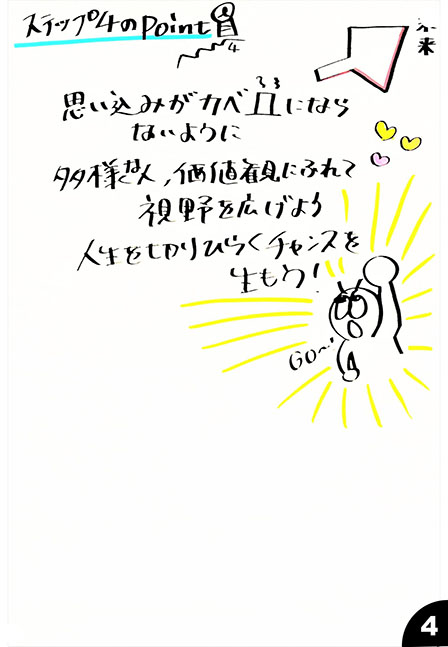 ステップ4のPoint
4
未来
思い込みがカベになら
ないように
多様な人、価値観にふれて
視野を広げよう
人生を切りひらくチャンスを
生もう!
GO〜!
4